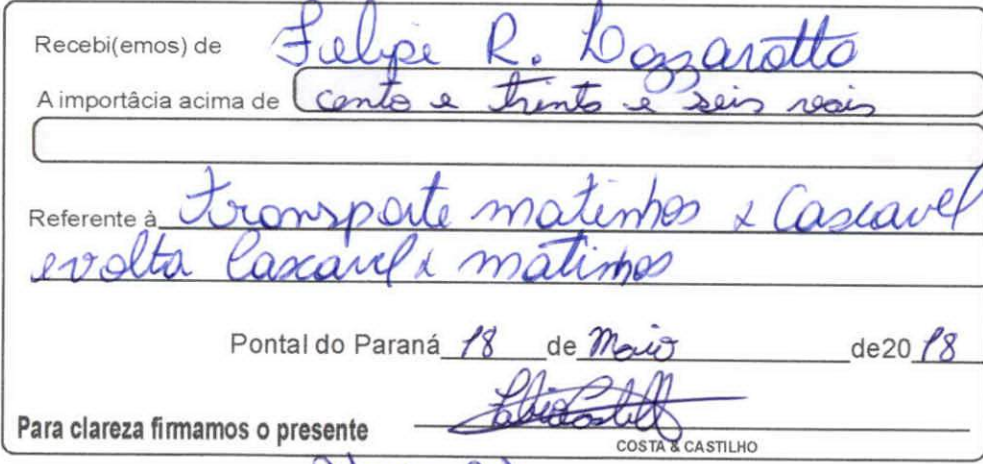 Recebi(emos) de Felipe R. Lozzarotto
A importâcia acima de cento e trinta e seis reais
Referente à Transporte matinhos x Cascavel
e volta Cascavel x matinhos
Pontal do Paraná 18 de Maio de20 18
Para clareza firmamos o presente
COSTA & CASTILHO